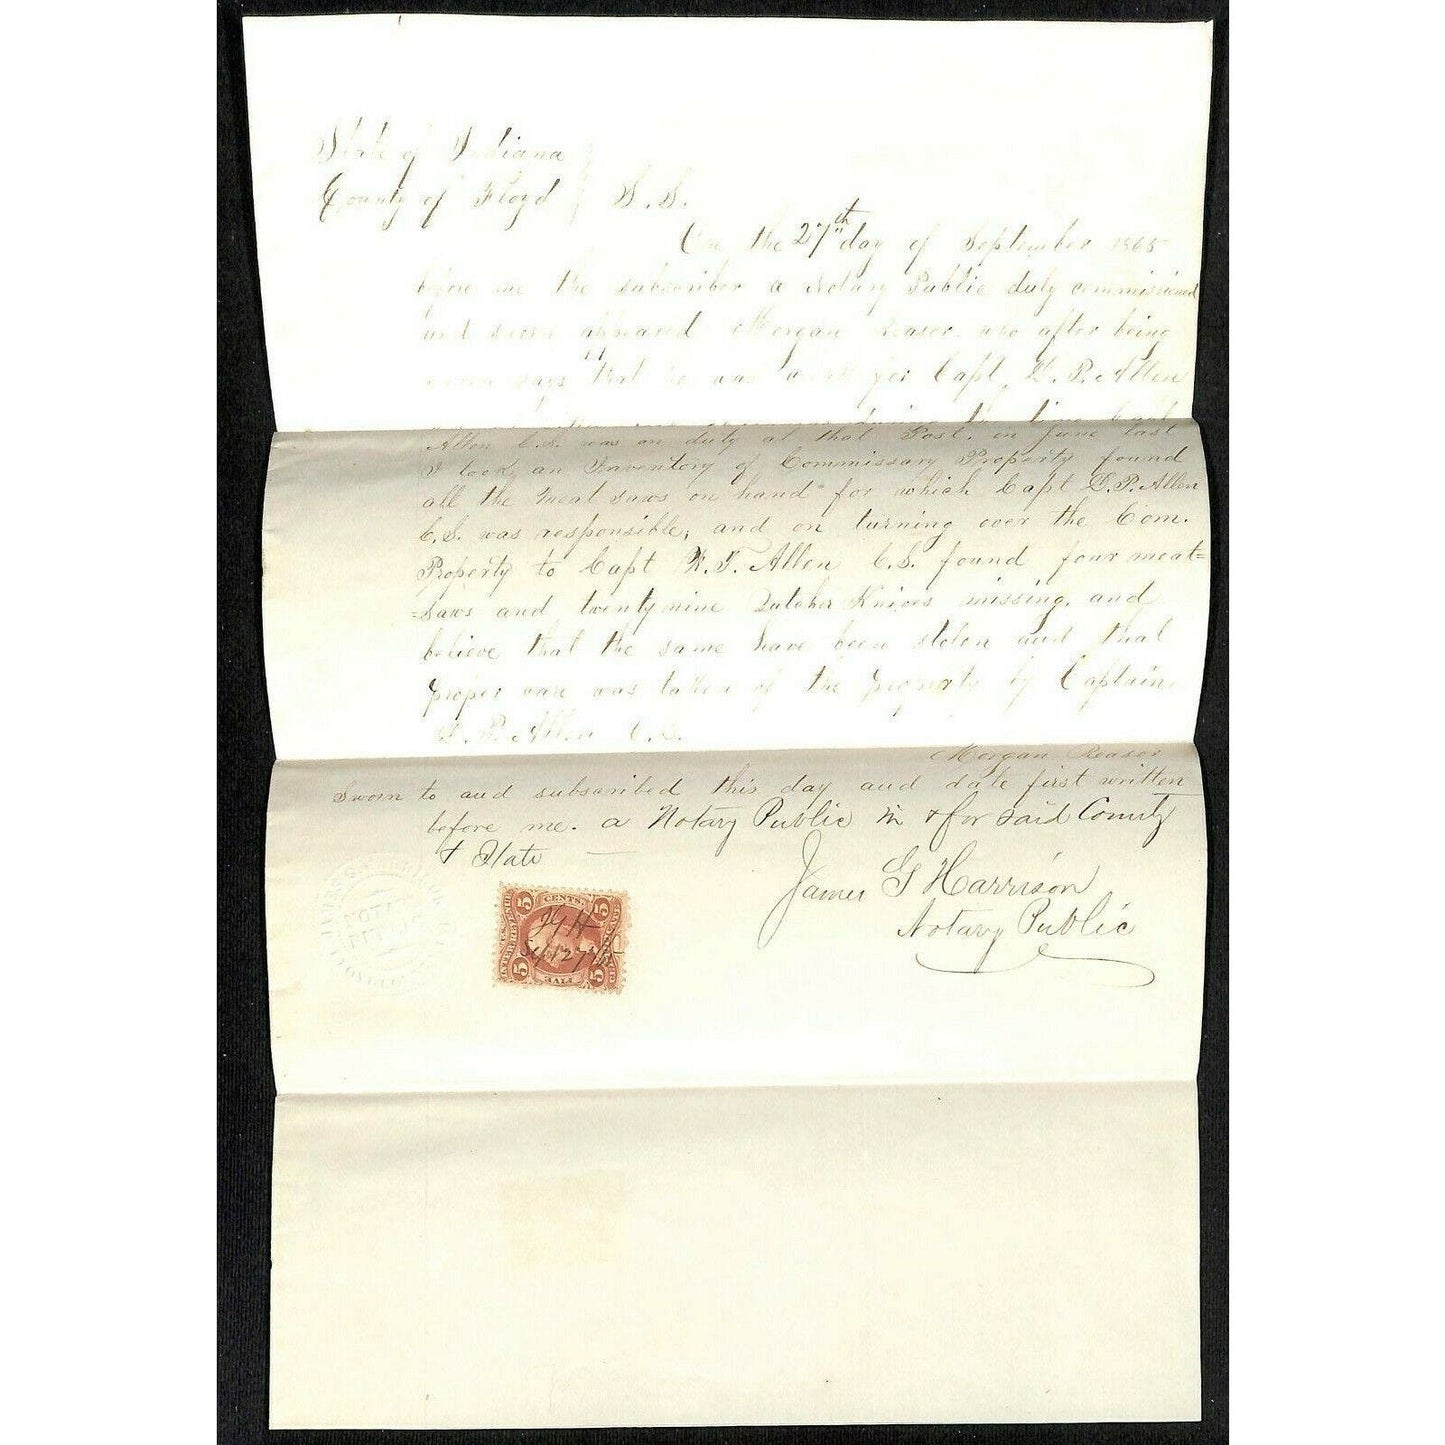 State of Indiana
County of Floyd } S.S.
On the 27th day of September 1865
before me the subscriber a Notary Public duly commissioned
and sworn appeared Morgan Reasor who after being
sworn says that he was for Capt. P. Allen
during the time Capt
Allen C.S. was on duty at that Post, in June last
I took an Inventory of Commissary Property found
all the meat saws on hand for which Capt P. Allen
C.S. was responsible, and on turning over the Com.
Property to Capt Allen C.S. found four meat=
=saws and twenty nine Butcher Knives missing, and
believe that the same have been stolen and that
proper care was taken of the property by Captain
P. Allen C.S.
Morgan Reasor
Sworn to and subscribed this day and date first written
before me. a Notary Public in & for said County
& State —
James G Harrison
Notary Public
5 CENTS 5
JGH
Sept 27th/65
5 FIVE 5